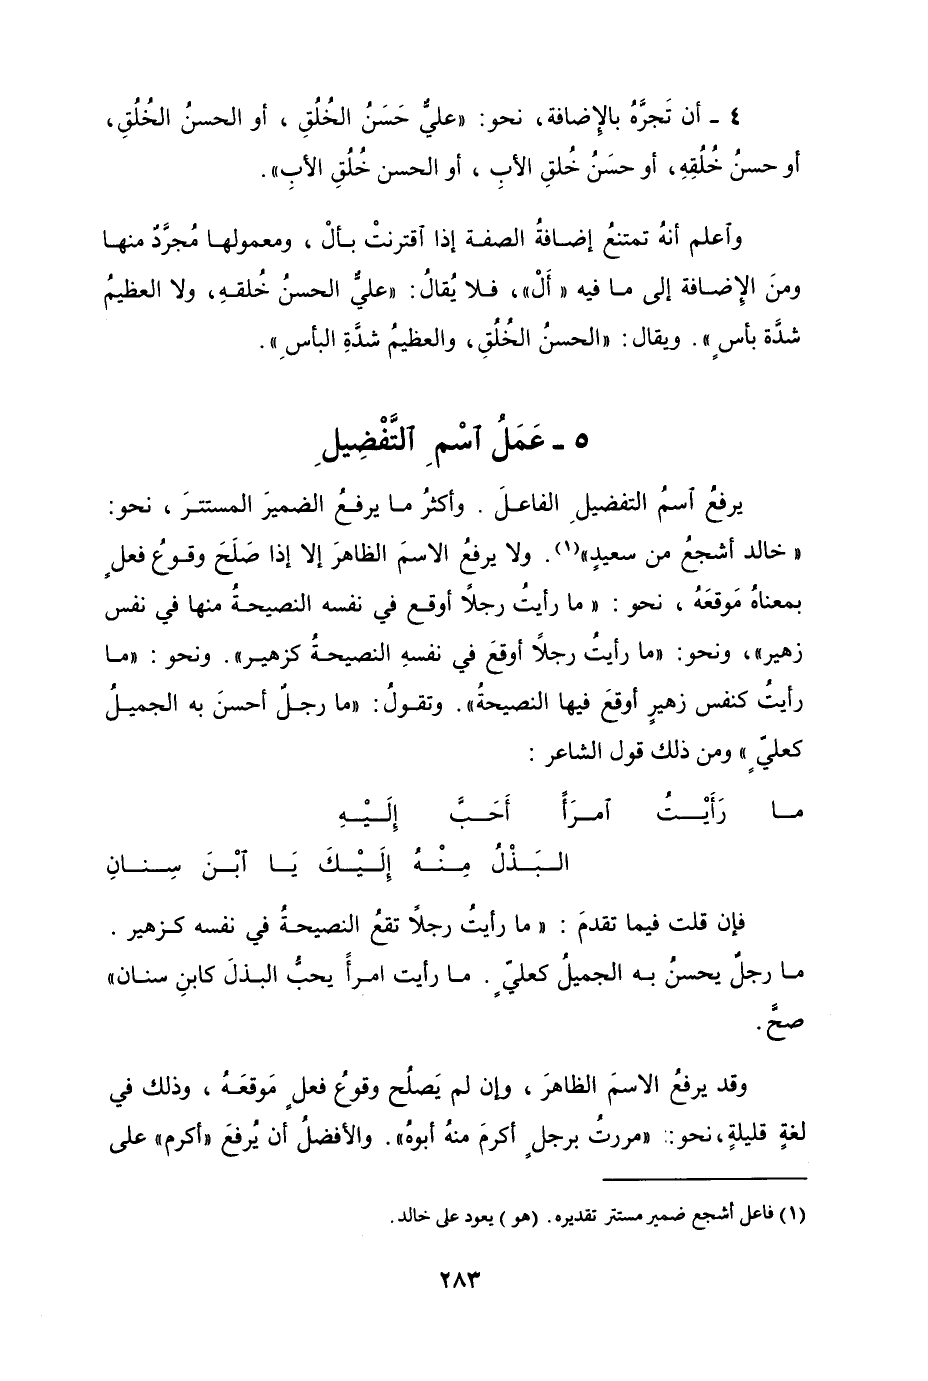 ٤ - أن تَجرَّهُ بالإِضافة، نحو: «عليٌّ حَسَنُ الخُلُقِ ، أو الحسنُ الخُلُقِ،
أو حسنُ خُلُقِهِ، أو حسَنُ خُلقِ الأبِ ، أو الحسن خُلُقِ الأبِ».
وٱعلم أنهُ تمتنعُ إضافةُ الصفة إذا ٱقترنتْ بألْ ، ومعمولها مُجرَّدٌ منها
ومنَ الإِضافة إلى ما فيه « أَلْ»، فلا يُقالُ: «عليٌّ الحسنُ خُلقهِ، ولا العظيمُ
شدَّة بأسٍ». ويقال: «الحسنُ الخُلُقِ، والعظيمُ شدَّةِ البأسِ».
٥ - عَمَلُ ٱسْمِ ٱلتَّفْضِيلِ
يرفعُ ٱسمُ التفضيلِ الفاعلَ . وأكثرُ ما يرفعُ الضميرَ المستترَ ، نحو:
« خالد أشجعُ من سعيدٍ»(١). ولا يرفعُ الاسمَ الظاهرَ إلا إذا صَلَحَ وقوعُ فعلٍ
بمعناهُ مَوقعَهُ ، نحو : « ما رأيتُ رجلاً أوقع في نفسه النصيحةُ منها في نفس
زهير»، ونحو: «ما رأيتُ رجلاً أوقعَ في نفسهِ النصيحةُ كزهير». ونحو : «ما
رأيتُ كنفس زهيرٍ أوقعَ فيها النصيحةُ». وتقولُ: «ما رجلٌ أحسنَ به الجميلُ
كعليّ ٍ» ومن ذلك قول الشاعر :
ما رَأَيْتُ ٱمرَأً أَحَبَّ إِلَيْهِ
البَذْلُ مِنْهُ إِلَيْكَ يَا ٱبْنَ سِنانِ
فإن قلت فيما تقدمَ : « ما رأيتُ رجلاً تقعُ النصيحةُ في نفسه كزهير .
ما رجلٌ يحسنُ به الجميلُ كعليّ ٍ. ما رأيت امرأً يحبُّ البذلَ كابنِ سنان»
صحَّ.
وقد يرفعُ الاسمَ الظاهرَ ، وإن لم يَصلُح وقوعُ فعلٍ مَوقعَهُ ، وذلك في
لغةٍ قليلةٍ، نحو: «مررتُ برجلٍ أكرمَ منهُ أبوهُ». والأفضلُ أن يُرفعَ «أكرم» على
(١) فاعل أشجع ضمير مستتر تقديره. (هو) يعود على خالد.
٢٨٣